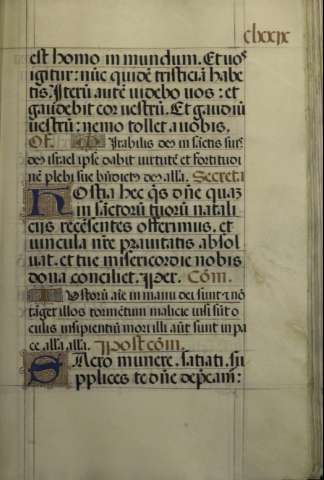 cxxxix
est homo in mundum. Et uos
igitur: nūc quidē tristiciā habe
tis. Iterū autē uidebo uos: et
gaudebit cor uestrū. Et gaudiū
uestrū: nemo tollet a uobis.
Of. Mirabilis deꝰ in sāctis suis:
deꝰ israel ipse dabit uirtutē et fortitudi
nē plebi sue bn̄dictꝰ deꝰ alla. Secreta
Hostia hec qs̄ dn̄e quaꝫ
in sāctorū tuorū natali
cijs recēsentes offerimus. et
uincula nr̄e prauitatis absol
uat. et tue misericordie nobis
dona conciliet. Per. Cōm.
Iustorū aīe in manu dei sunt ⁊ nō
tāget illos tormētum malicie uisi sūt o
culis insipientiū mori illi aūt sunt in pa
ce alla alla. Postcōm.
Sacro munere. satiati. su
pplices te dn̄e dep̄cam: